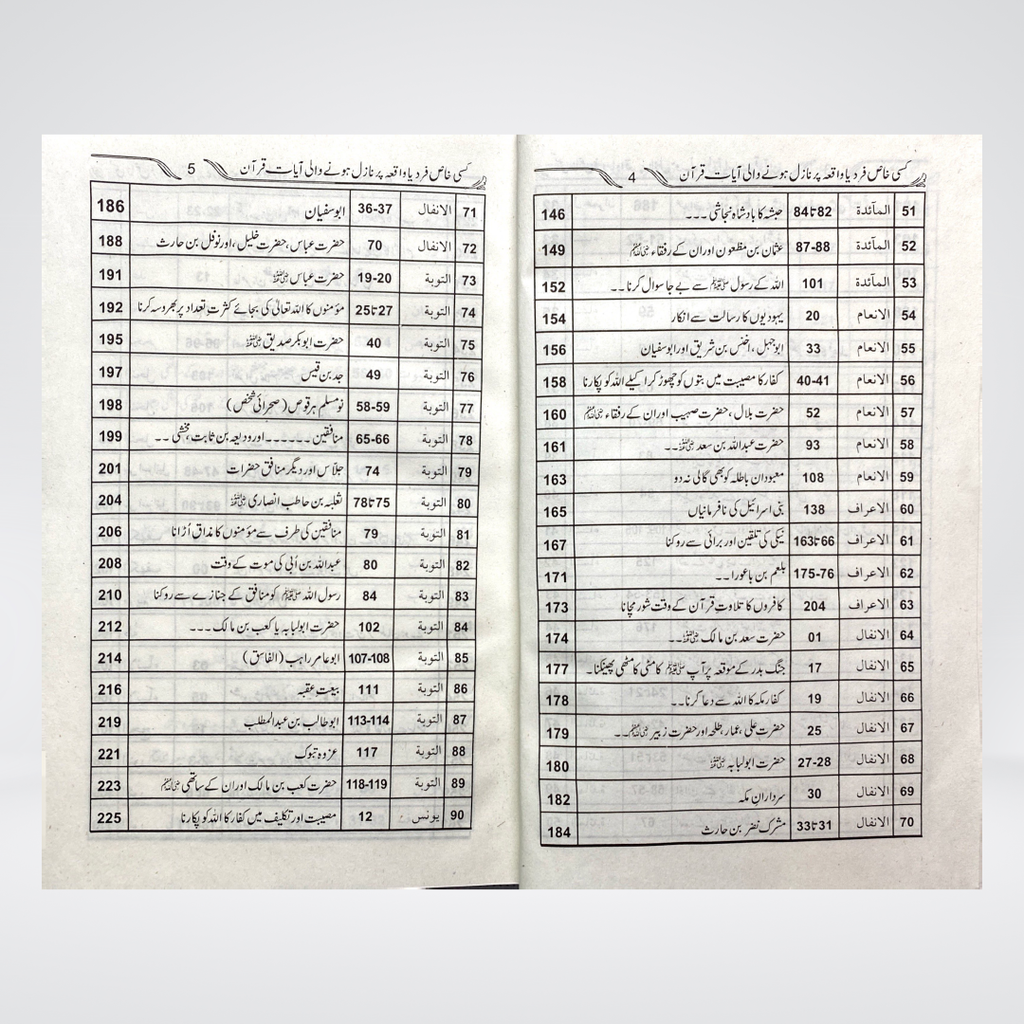 کسی خاص فرد یا واقعہ پر نازل ہونے والی آیات قرآن 4
51 المآئدة 82تا84 حبشہ کا بادشاہ نجاشی ۔۔۔ 146
52 المآئدة 87-88 عثمان بن مظعون اور ان کے رفقاء ﷺ 149
53 المآئدة 101 اللہ کے رسول ﷺ سے بے جا سوال کرنا ۔۔ 152
54 الانعام 20 یہودیوں کا رسالت سے انکار 154
55 الانعام 33 ابوجہل، اخنس بن شریق اور ابوسفیان 156
56 الانعام 40-41 کفار کا مصیبت میں بتوں کو چھوڑ کر اکیلے اللہ کو پکارنا 158
57 الانعام 52 حضرت بلال، حضرت صہیب اور ان کے رفقاء ﷺ 160
58 الانعام 93 حضرت عبداللہ بن سعد ۔۔ 161
59 الانعام 108 معبودان باطلہ کو بھی گالی نہ دو 163
60 الاعراف 138 بنی اسرائیل کی نافرمانیاں 165
61 الاعراف 66تا163 نیکی کی تلقین اور برائی سے روکنا 167
62 الاعراف 175-76 بلعم بن باعورا ۔۔ 171
63 الاعراف 204 کافروں کا تلاوتِ قرآن کے وقت شور مچانا 173
64 الانفال 01 حضرت سعد بن مالک ۔۔ 174
65 الانفال 17 جنگ بدر کے موقعہ پر آپ ﷺ کا مٹی کا مٹھی پھینکنا۔ 177
66 الانفال 19 کفار مکہ کا اللہ سے دعا کرنا۔۔ 178
67 الانفال 25 حضرت علی، عمار، طلحہ اور حضرت زبیر ۔۔ 179
68 الانفال 27-28 حضرت ابولبابہ 180
69 الانفال 30 سردارانِ مکہ 182
70 الانفال 31تا33 مشرک نضر بن حارث 184
کسی خاص فرد یا واقعہ پر نازل ہونے والی آیات قرآن 5
71 الانفال 36-37 ابوسفیان 186
72 الانفال 70 حضرت عباس، حضرت خلیل، اور نوفل بن حارث 188
73 التوبة 19-20 حضرت عباس 191
74 التوبة 27تا25 مؤمنوں کا اللہ تعالیٰ کی بجائے کثرتِ تعداد پر بھروسہ کرنا 192
75 التوبة 40 حضرت ابوبکر صدیق 195
76 التوبة 49 جد بن قیس 197
77 التوبة 58-59 نو مسلم ہرقوص (صحرائی شخص) 198
78 التوبة 65-66 منافقین ۔۔۔۔۔۔ اور ودیعہ بن ثابت، مخشی ۔۔ 199
79 التوبة 74 جلاس اور دیگر منافق حضرات 201
80 التوبة 75تا78 ثعلبہ بن حاطب انصاری 204
81 التوبة 79 منافقین کی طرف سے مؤمنوں کا مذاق اُڑانا 206
82 التوبة 80 عبداللہ بن اُبی کی موت کے وقت 208
83 التوبة 84 رسول اللہ ﷺ کو منافق کے جنازے سے روکنا 210
84 التوبة 102 حضرت ابولبابہ یا کعب بن مالک ۔۔۔ 212
85 التوبة 107-108 ابو عامر راہب (الفاسق) 214
86 التوبة 111 بیعتِ عقبہ 216
87 التوبة 113-114 ابوطالب بن عبدالمطلب 219
88 التوبة 117 غزوہ تبوک 221
89 التوبة 118-119 حضرت کعب بن مالک اور ان کے ساتھی 223
90 یونس 12 مصیبت اور تکلیف میں کفار کا اللہ کو پکارنا 225